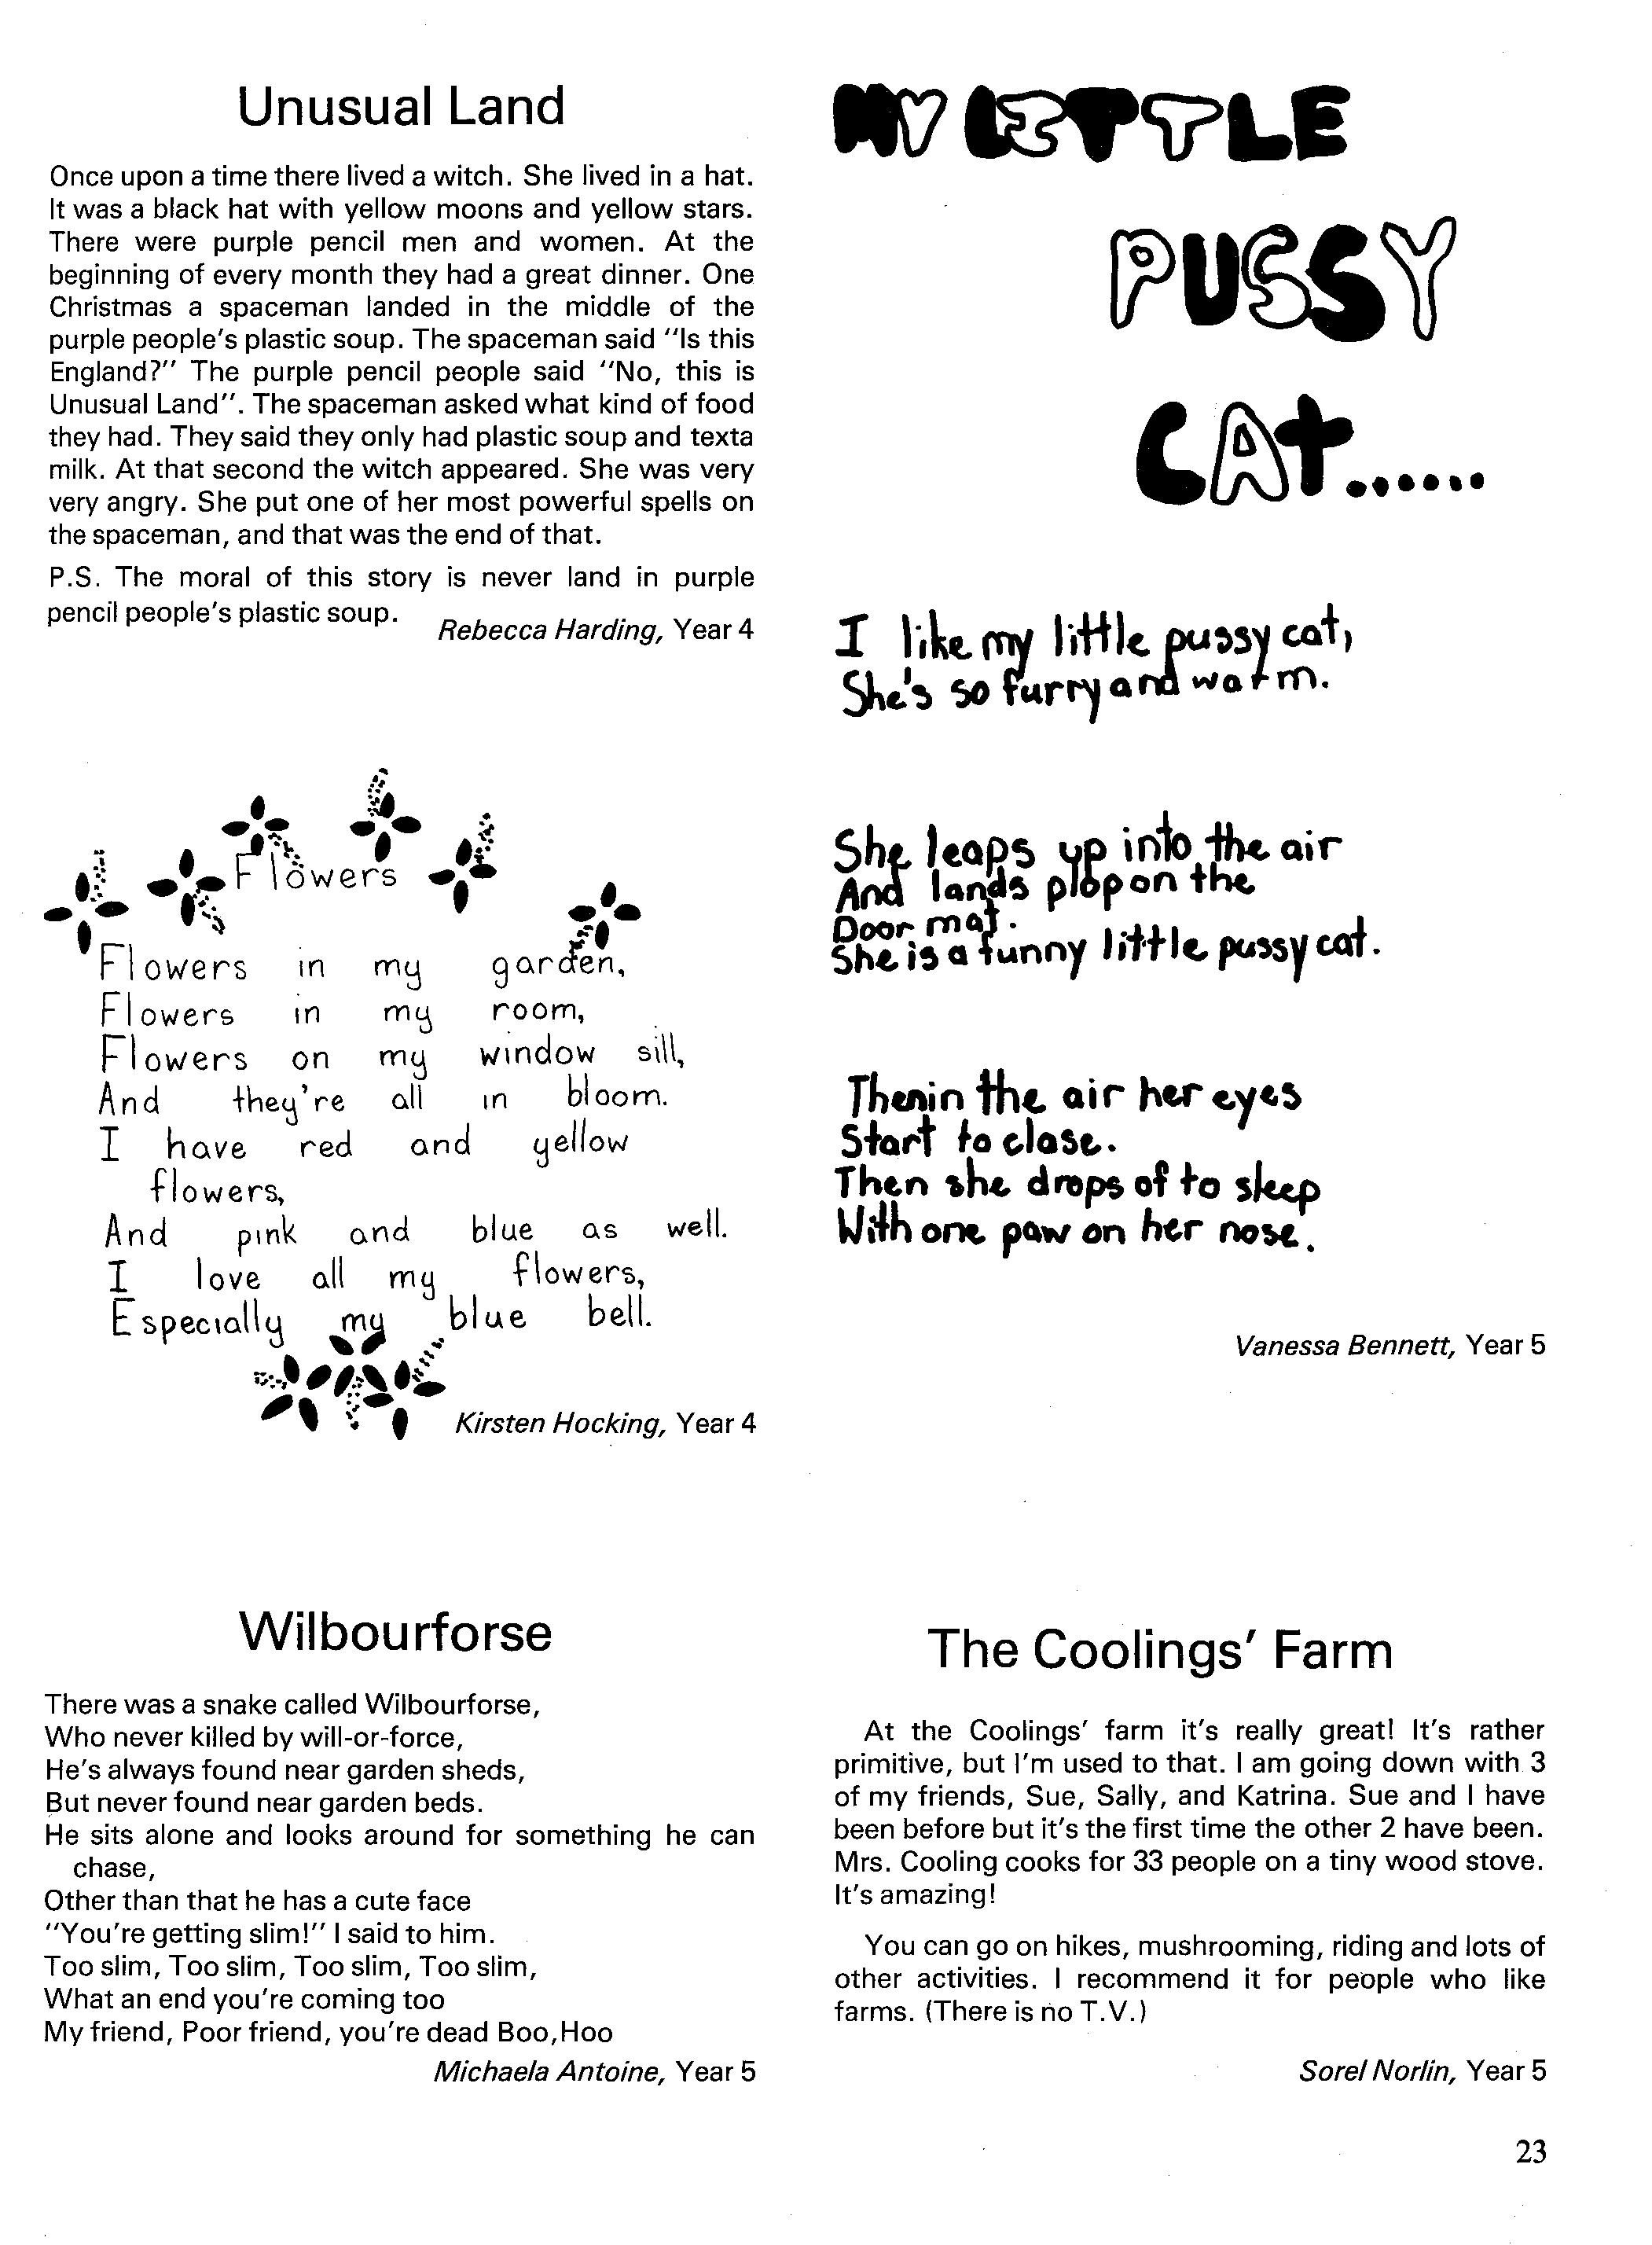 Unusual Land
Once upon a time there lived a witch. She lived in a hat.
It was a black hat with yellow moons and yellow stars.
There were purple pencil men and women. At the
beginning of every month they had a great dinner. One
Christmas a spaceman landed in the middle of the
purple people's plastic soup. The spaceman said "Is this
England?" The purple pencil people said "No, this is
Unusual Land". The spaceman asked what kind of food
they had. They said they only had plastic soup and texta
milk. At that second the witch appeared. She was very
very angry. She put one of her most powerful spells on
the spaceman, and that was the end of that.
P.S. The moral of this story is never land in purple
pencil people's plastic soup.
Rebecca Harding, Year 4
Flowers
Flowers in my garden,
Flowers in my room,
Flowers on my window sill,
And they're all in bloom.
I have red and yellow
flowers,
And pink and blue as well.
I love all my flowers,
Especially my blue bell.
Kirsten Hocking, Year 4
Wilbourforse
There was a snake called Wilbourforse,
Who never killed by will-or-force,
He's always found near garden sheds,
But never found near garden beds.
He sits alone and looks around for something he can
chase,
Other than that he has a cute face
"You're getting slim!" I said to him.
Too slim, Too slim, Too slim, Too slim,
What an end you're coming too
My friend, Poor friend, you're dead Boo,Hoo
Michaela Antoine, Year 5
MY LITTLE
PUSSY
CAT......
I like my little pussy cat,
She's so furry and warm.
She leaps up into the air
And lands plop on the
Door mat.
She is a funny little pussy cat.
Then in the air her eyes
Start to close.
Then she drops of to sleep
With one paw on her nose.
Vanessa Bennett, Year 5
The Coolings' Farm
At the Coolings' farm it's really great! It's rather
primitive, but I'm used to that. I am going down with 3
of my friends, Sue, Sally, and Katrina. Sue and I have
been before but it's the first time the other 2 have been.
Mrs. Cooling cooks for 33 people on a tiny wood stove.
It's amazing!
You can go on hikes, mushrooming, riding and lots of
other activities. I recommend it for people who like
farms. (There is no T.V.)
Sorel Norlin, Year 5
23